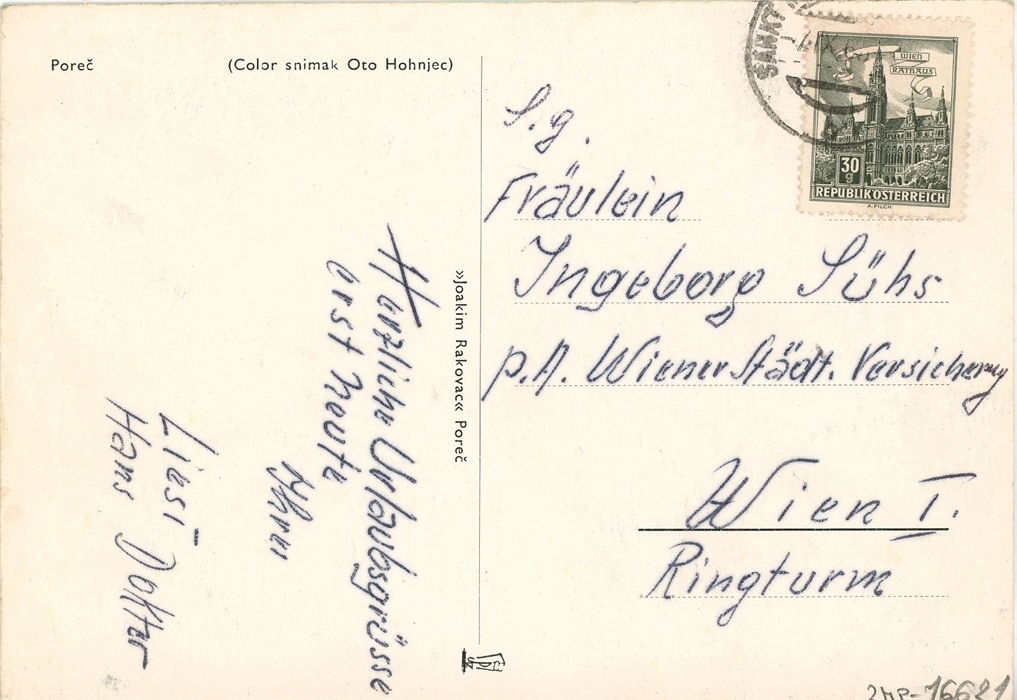 Poreč
(Color snimak Oto Hohnjec)
»Joakim Rakovac« Poreč
Herzliche Urlaubsgrüsse
erst heute
Ihre
Liesi
Hans Doktor
S.g.
Fräulein
Ingeborg Sühs
p.A. Wiener Städt. Versicherung
Wien I.
Ringturm
SANKT
WIEN
RATHAUS
30
g
REPUBLIK ÖSTERREICH
A. PILCH
2HP-16621